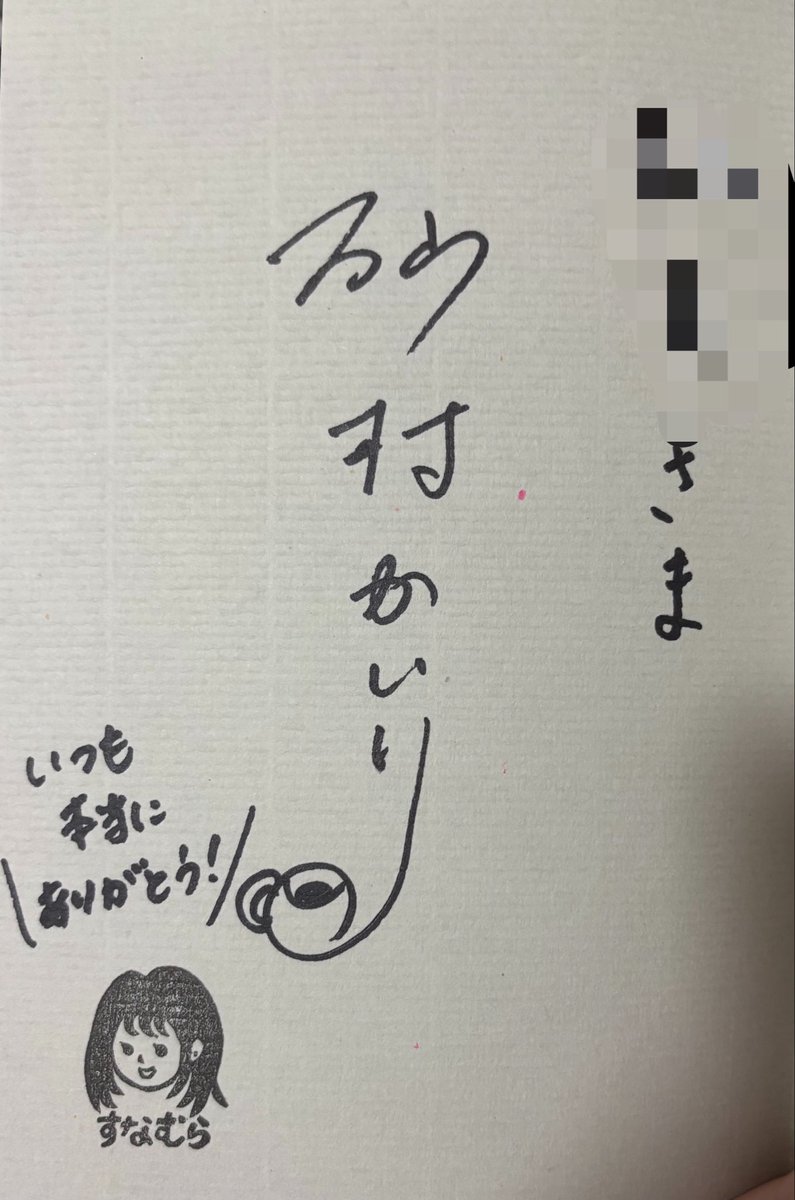 さま
砂村かいり
いつも
本当に
ありがとう!
すなむら